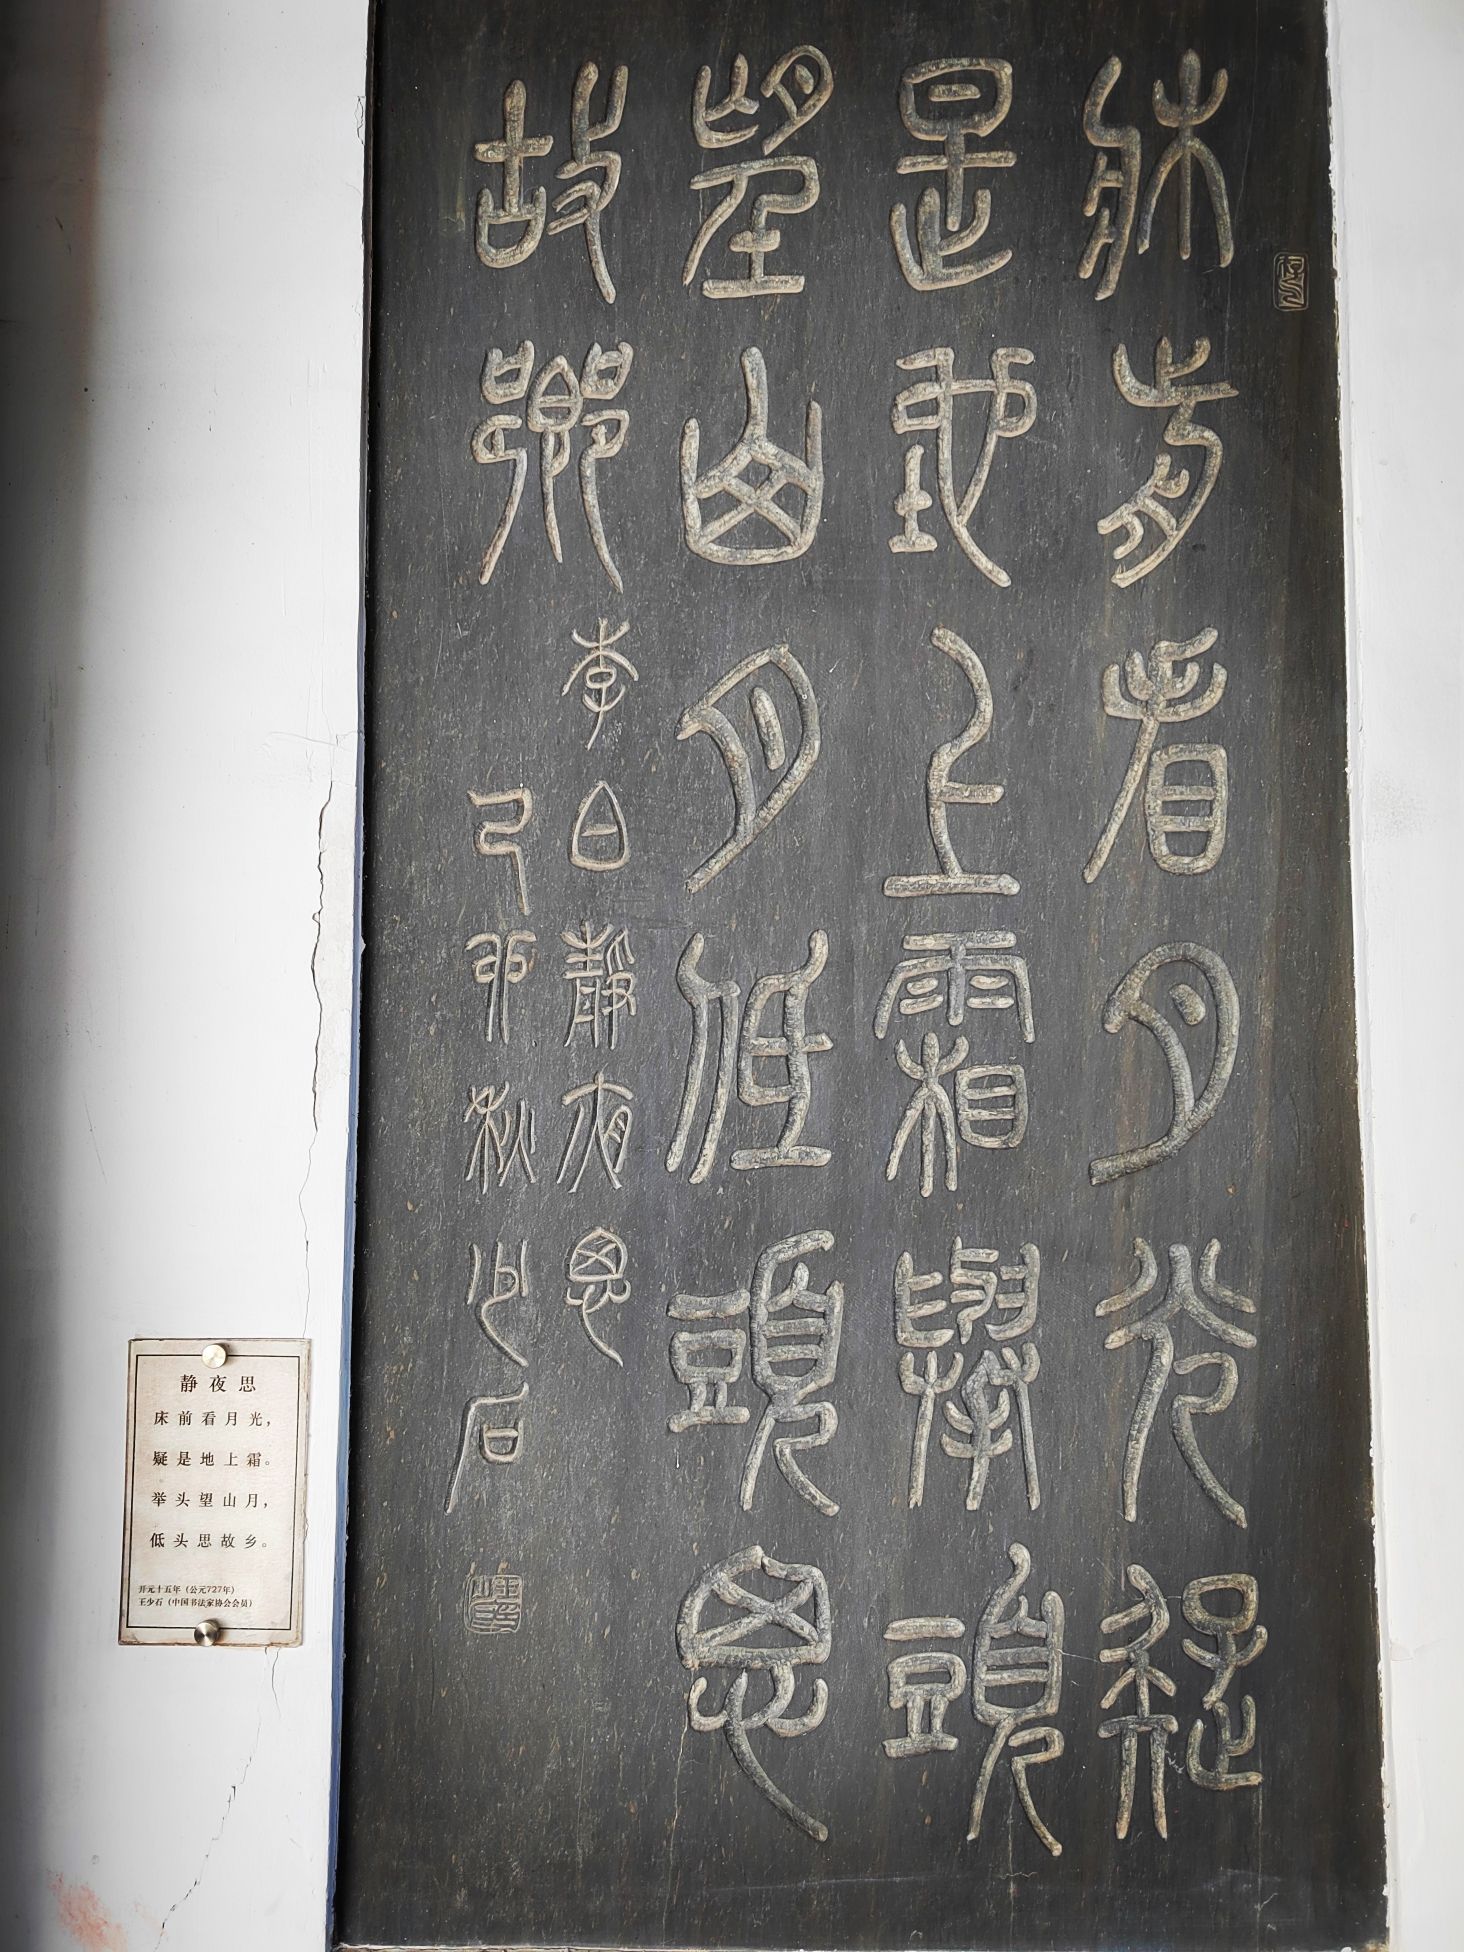 牀前看月光疑
是地上霜舉頭
望山月低頭思
故鄉
李白靜夜思
乙卯秋少石
静夜思
床前看月光，
疑是地上霜。
举头望山月，
低头思故乡。
开元十五年（公元727年）
王少石（中国书法家协会会员）